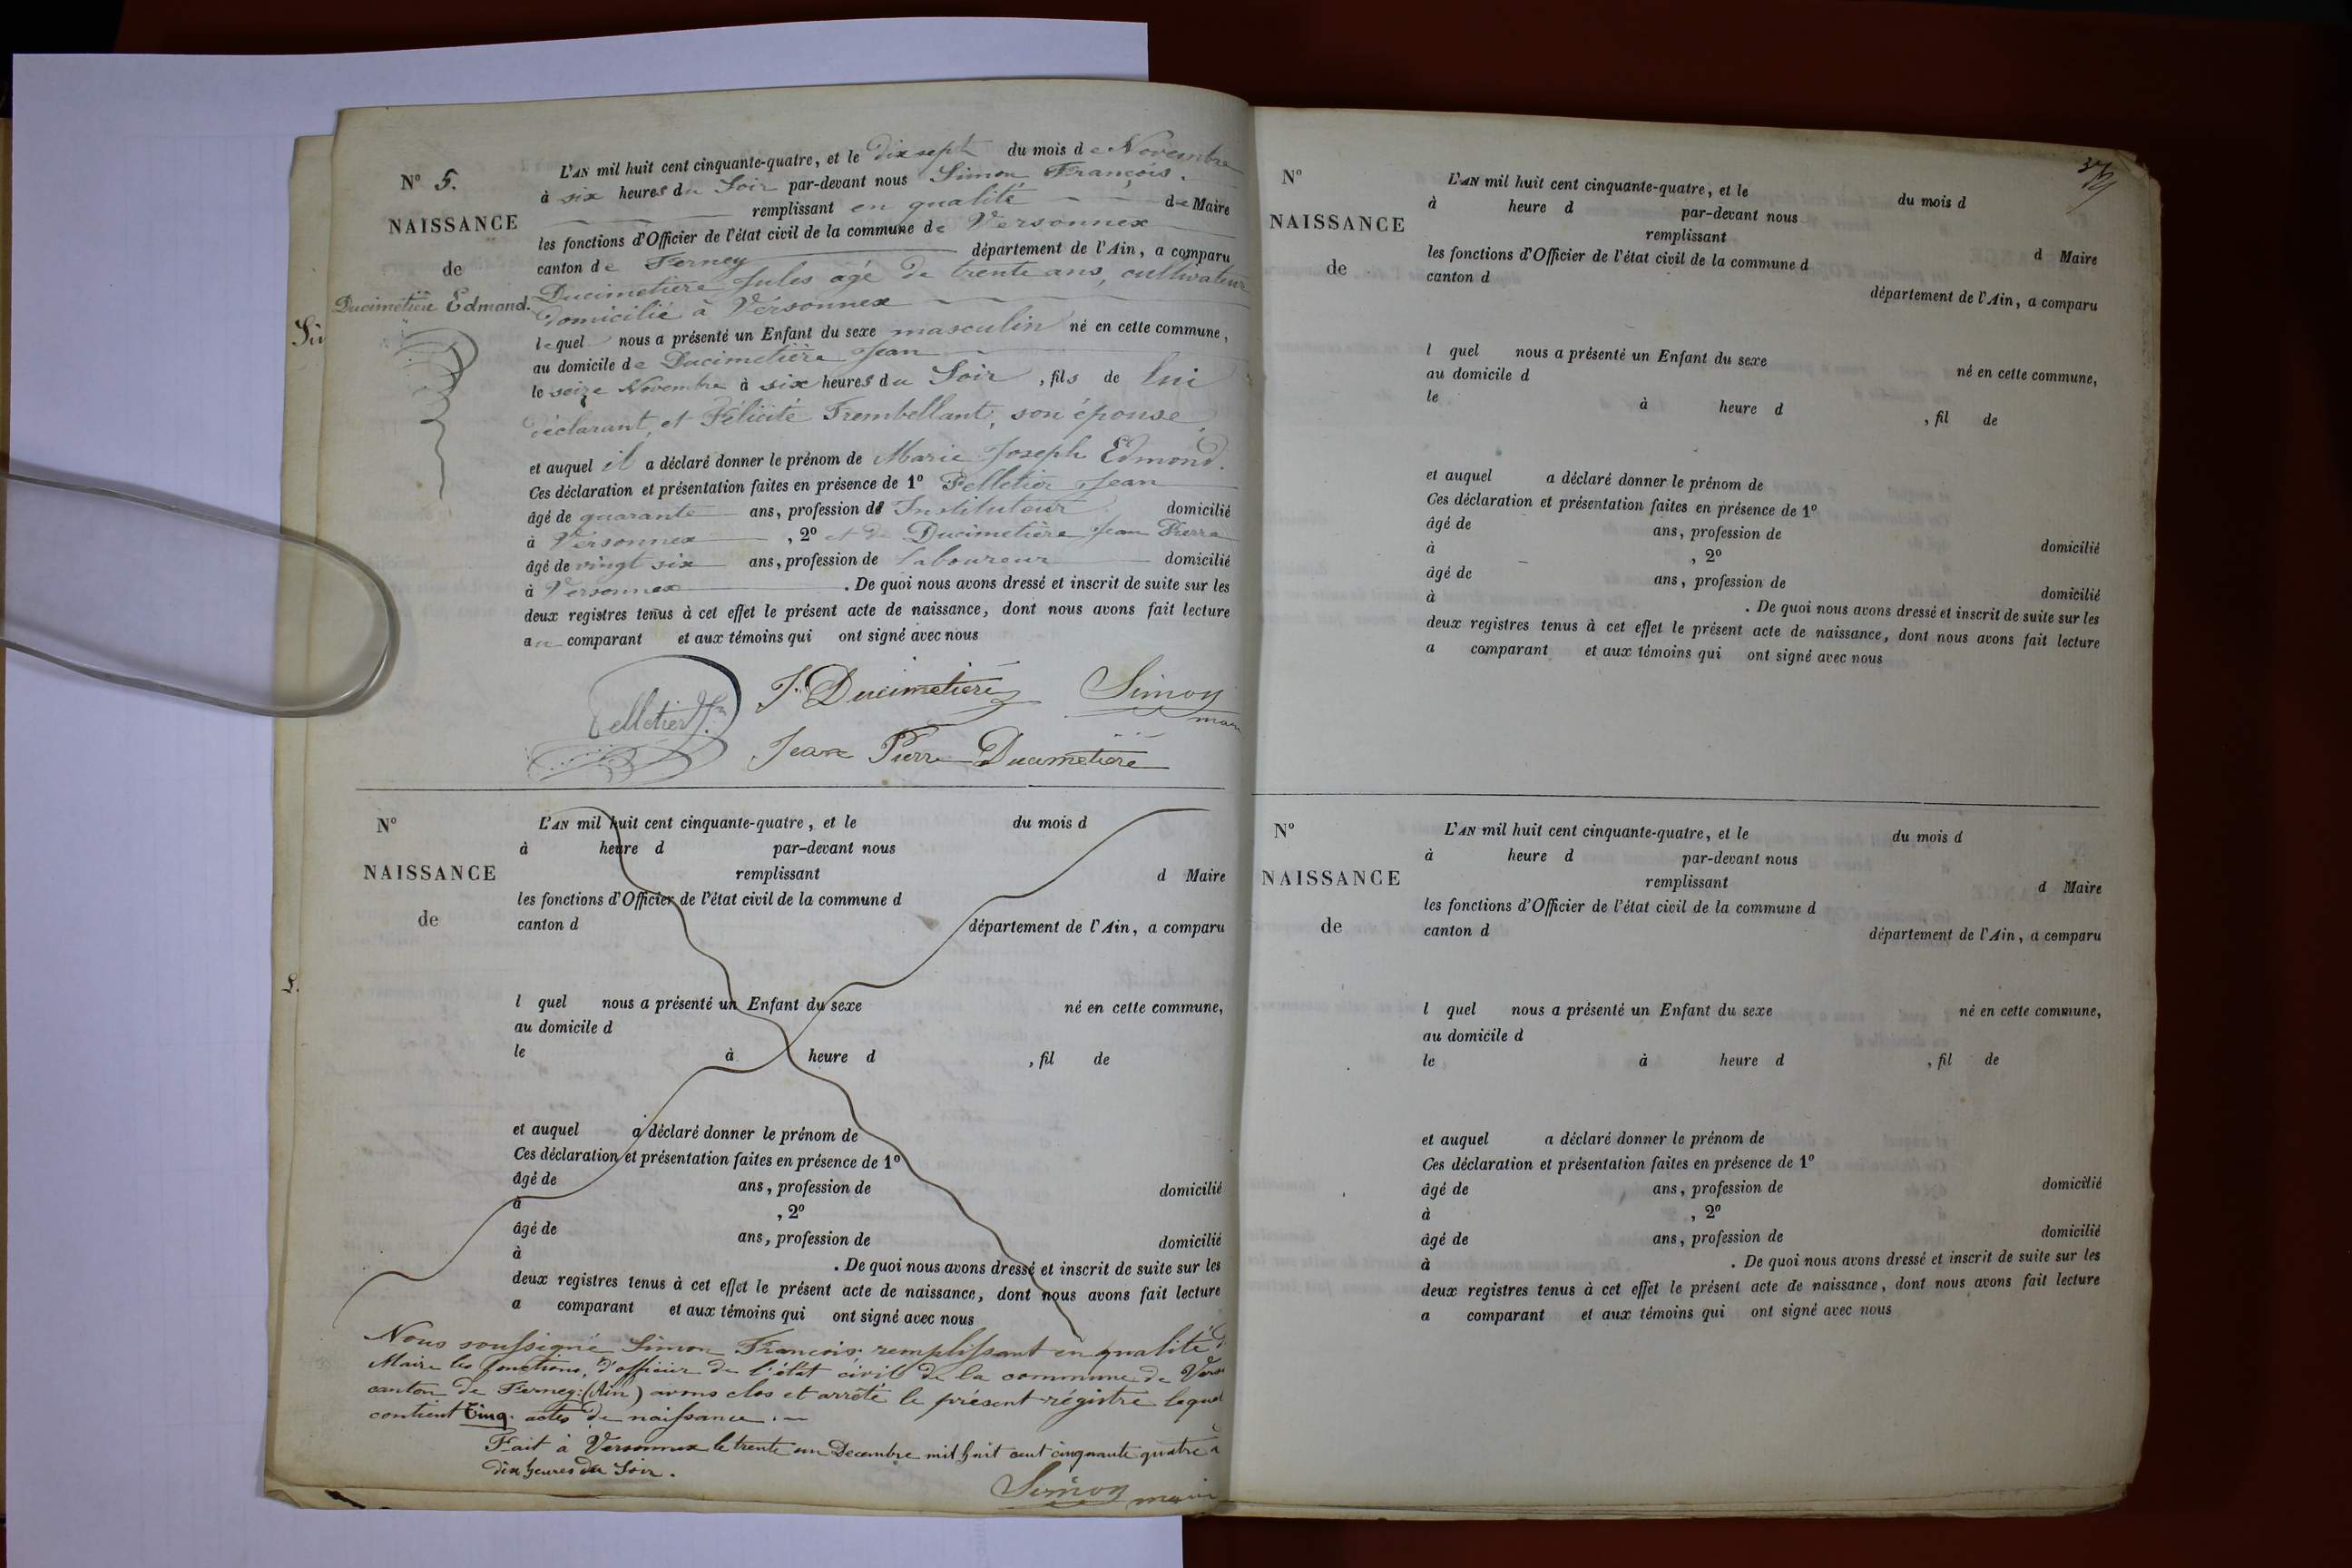 N° 5.
NAISSANCE
de
Ducimetière Edmond.
L'AN mil huit cent cinquante-quatre, et le dix sept du mois de Novembre
à six heures du Soir par-devant nous Simon François.
remplissant en qualité de Maire
les fonctions d'Officier de l'état civil de la commune de Versonnex
canton de Ferney département de l'Ain, a comparu
Ducimetière Jules agé de trente ans, cultivateur
domicilié à Versonnex
lequel nous a présenté un Enfant du sexe masculin né en cette commune,
au domicile de Ducimetière Jean
le seize Novembre à six heures du Soir, fils de lui
déclarant, et Félicité Trembellant, son épouse,
et auquel il a déclaré donner le prénom de Marie Joseph Edmond.
Ces déclaration et présentation faites en présence de 1° Pelletier Jean
âgé de quarante ans, profession d' Instituteur domicilié
à Versonnex, 2° et de Ducimetière Jean Pierre
âgé de vingt six ans, profession de laboureur domicilié
à Versonnex. De quoi nous avons dressé et inscrit de suite sur les
deux registres tenus à cet effet le présent acte de naissance, dont nous avons fait lecture
au comparant et aux témoins qui ont signé avec nous
Pelletier Jn J. Ducimetière Simon
maire
Jean Pierre Ducimetière
N°
NAISSANCE
de
L'AN mil huit cent cinquante-quatre, et le du mois d
à heure d par-devant nous
remplissant d Maire
les fonctions d'Officier de l'état civil de la commune d
canton d département de l'Ain, a comparu
l quel nous a présenté un Enfant du sexe né en cette commune,
au domicile d
le à heure d , fil de
et auquel a déclaré donner le prénom de
Ces déclaration et présentation faites en présence de 1°
âgé de ans, profession de domicilié
à , 2°
âgé de ans, profession de domicilié
à . De quoi nous avons dressé et inscrit de suite sur les
deux registres tenus à cet effet le présent acte de naissance, dont nous avons fait lecture
a comparant et aux témoins qui ont signé avec nous
Nous soussigné Simon François remplissant en qualité d
Maire les fonctions, d'officier de l'état civil de la commune de Vers
canton de Ferney (Ain) avons clos et arrêté le présent régistre lequel
contient Cinq. actes de naissance.
Fait à Versonnex le trente un Decembre mil huit cent cinquante quatre à
dix heures du Soir.
Simon maire
N°
NAISSANCE
de
L'AN mil huit cent cinquante-quatre, et le du mois d
à heure d par-devant nous
remplissant d Maire
les fonctions d'Officier de l'état civil de la commune d
canton d département de l'Ain, a comparu
l quel nous a présenté un Enfant du sexe né en cette commune,
au domicile d
le à heure d , fil de
et auquel a déclaré donner le prénom de
Ces déclaration et présentation faites en présence de 1°
âgé de ans, profession de domicilié
à , 2°
âgé de ans, profession de domicilié
à . De quoi nous avons dressé et inscrit de suite sur les
deux registres tenus à cet effet le présent acte de naissance, dont nous avons fait lecture
a comparant et aux témoins qui ont signé avec nous
N°
NAISSANCE
de
L'AN mil huit cent cinquante-quatre, et le du mois d
à heure d par-devant nous
remplissant d Maire
les fonctions d'Officier de l'état civil de la commune d
canton d département de l'Ain, a comparu
l quel nous a présenté un Enfant du sexe né en cette commune,
au domicile d
le à heure d , fil de
et auquel a déclaré donner le prénom de
Ces déclaration et présentation faites en présence de 1°
âgé de ans, profession de domicilié
à , 2°
âgé de ans, profession de domicilié
à . De quoi nous avons dressé et inscrit de suite sur les
deux registres tenus à cet effet le présent acte de naissance, dont nous avons fait lecture
a comparant et aux témoins qui ont signé avec nous